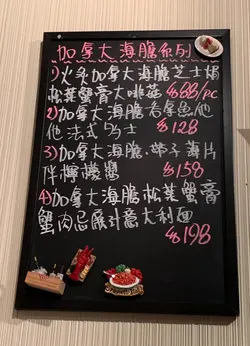 加拿大海膽系列
1) 火炙加拿大海膽芝士焗
松葉蟹膏大啡菇 $68/pc
2) 加拿大海膽吞拿魚他
他法式多士 $128
3) 加拿大海膽、帶子薄片
伴檸檬醬 $158
4) 加拿大海膽松葉蟹膏
蟹肉忌廉汁意大利面
$198